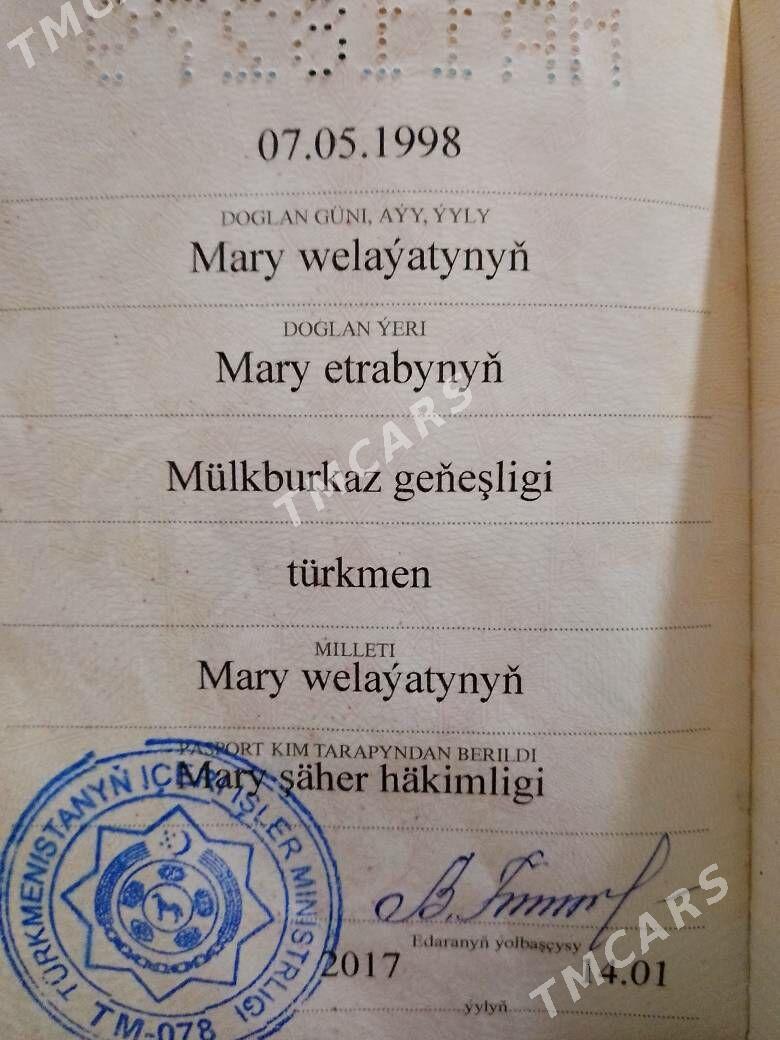 TMCARS
07.05.1998
DOGLAN GÜNI, AÝY, ÝYLY
Mary welaýatynyň
DOGLAN ÝERI
Mary etrabynyň
TMCARS
Mülkburkaz geňeşligi
türkmen
MILLETI
Mary welaýatynyň
PASPORT KIM TARAPYNDAN BERILDI
Mary şäher häkimligi
TÜRKMENISTANYŇ IÇERI IŞLER MINISTRLIGI
TM-078
Edaranyň ýolbaşçysy
TMCARS
2017 14.01
ýylyň